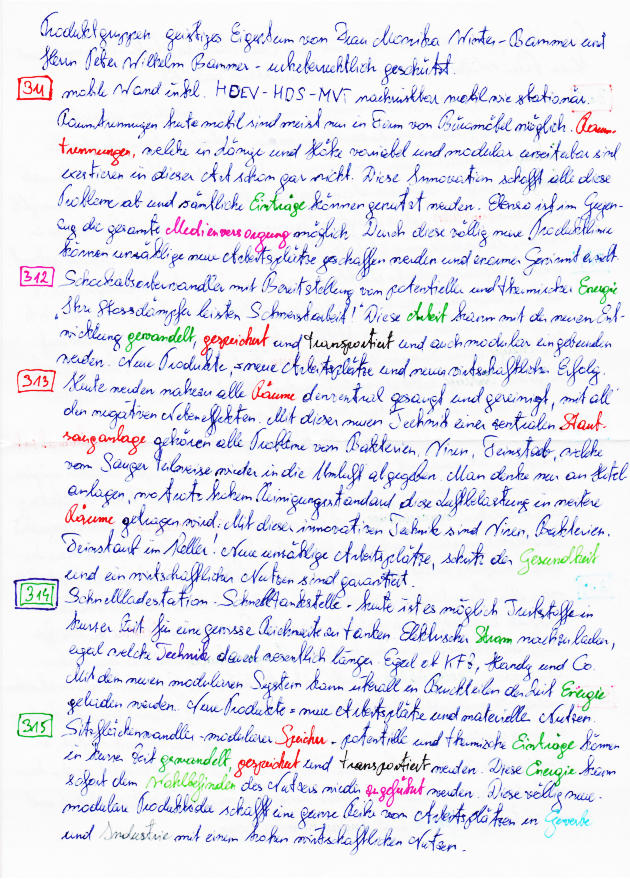 Produktgruppen geistiges Eigentum von Frau Monika Winter-Bammer und
Herrn Peter Wilhelm Bammer - urheberrechtlich geschützt.
311 mobile Wand inkl. HDEV-HDS-MVT nachrüstbar mobil wie stationär.
Raumtrennungen heute mobil sind meist nur in Form von Büromöbel möglich. Raum-
trennungen, welche in Länge und Höhe variabel und modular erweiterbar sind
existieren in dieser Art schon gar nicht. Diese Innovation schafft alle diese
Probleme ab und sämtliche Einträge können genutzt werden. Ebenso ist im Gegen-
zug die gesamte Medienversorgung möglich. Durch diese völlig neue Produktlinie
können unzählige neue Arbeitsplätze geschaffen werden und enormer Gewinn erzielt
312 Schockabsorberwandler mit Bereitstellung von potentieller und thermischer Energie
"Ihre Stossdämpfer leisten Schwerstarbeit!" Diese Arbeit kann mit der neuen Ent-
wicklung gewandelt, gespeichert und transportiert und auch modular eingebunden
werden. Neue Produkte = neue Arbeitsplätze und neuen wirtschaftlichen Erfolg.
313 Heute werden nahezu alle Räume dezentral gesaugt und gereinigt, mit all
den negativen Nebeneffekten. Mit dieser neuen Technik einer zentralen Staub-
sauganlage gehören alle Probleme von Bakterien, Viren, Feinstaub, welche
vom Sauger teilweise wieder in die Umluft abgegeben. Man denke nur an Hotel-
anlagen, wo trotz hohem Reinigungsstandard diese Luftbelastung in weitere
Räume getragen wird. Mit dieser innovativen Technik sind Viren, Bakterien,
Feinstaub im Keller! Neue unzählige Arbeitsplätze, Schutz der Gesundheit
und ein wirtschaftlicher Nutzen sind garantiert.
314 Schnellladestation - Schnelltankstelle - heute ist es möglich Treibstoffe in
kurzer Zeit für eine grosse Reichweite zu tanken. Elektrischer Strom nachzuladen,
egal welche Technik dauert wesentlich länger. Egal ob KFZ, Handy und Co.
Mit dem neuen modularen System kann überall in Bruchteilen der Zeit Energie
geladen werden. Neue Produkte = neue Arbeitsplätze und materielle Nutzen.
315 Sitzflächenwandler - modularer Speicher - potentielle und thermische Einträge können
in kurzer Zeit gewandelt, gespeichert und transportiert werden. Diese Energie kann
sofort dem Wohlbefinden des Nutzers wieder zugeführt werden. Diese völlig neue
modulare Produktsidee schafft eine ganze Reihe von Arbeitsplätzen in Gewerbe
und Industrie mit einem hohen wirtschaftlichen Nutzen.